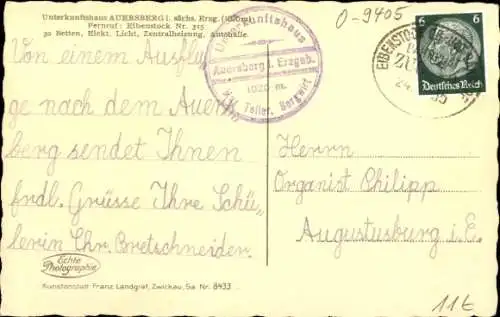 Unterkunftshaus AUERSBERG i. sächs. Erzg. (1020 m)
Fernruf: Eibenstock Nr. 315
30 Betten, Elekt. Licht, Zentralheizung, Autohalle.
Von einem Ausflu=
ge nach dem Auers=
berg sendet Ihnen
frdl. Grüsse Ihre Schü=
lerin Chr. Bretschneider.
Echte
Photographie
Kunstanstalt Franz Landgraf, Zwickau, Sa Nr. 8433
Unterkunftshaus
Auersberg i. Erzgeb.
1020 m.
Teller, Bergwirt
0-9405
EIBENSTOCK
ZUG
24.
6
6
Deutsches Reich
Herrn
Organist Philipp
Augustusburg i. E.
11t